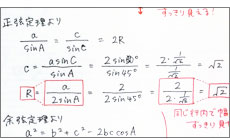 すっきり見える!
正弦定理より
a/sinA = c/sinC = 2R
c = asinC/sinA = 2sin30°/sin45° = 2·1/2/1/√2 = √2
R = a/2sinA = 2/2sin45° = 2/2·1/√2 = √2
同じ行内で
すっきり
余弦定理より
a² = b² + c² - 2bc cosA